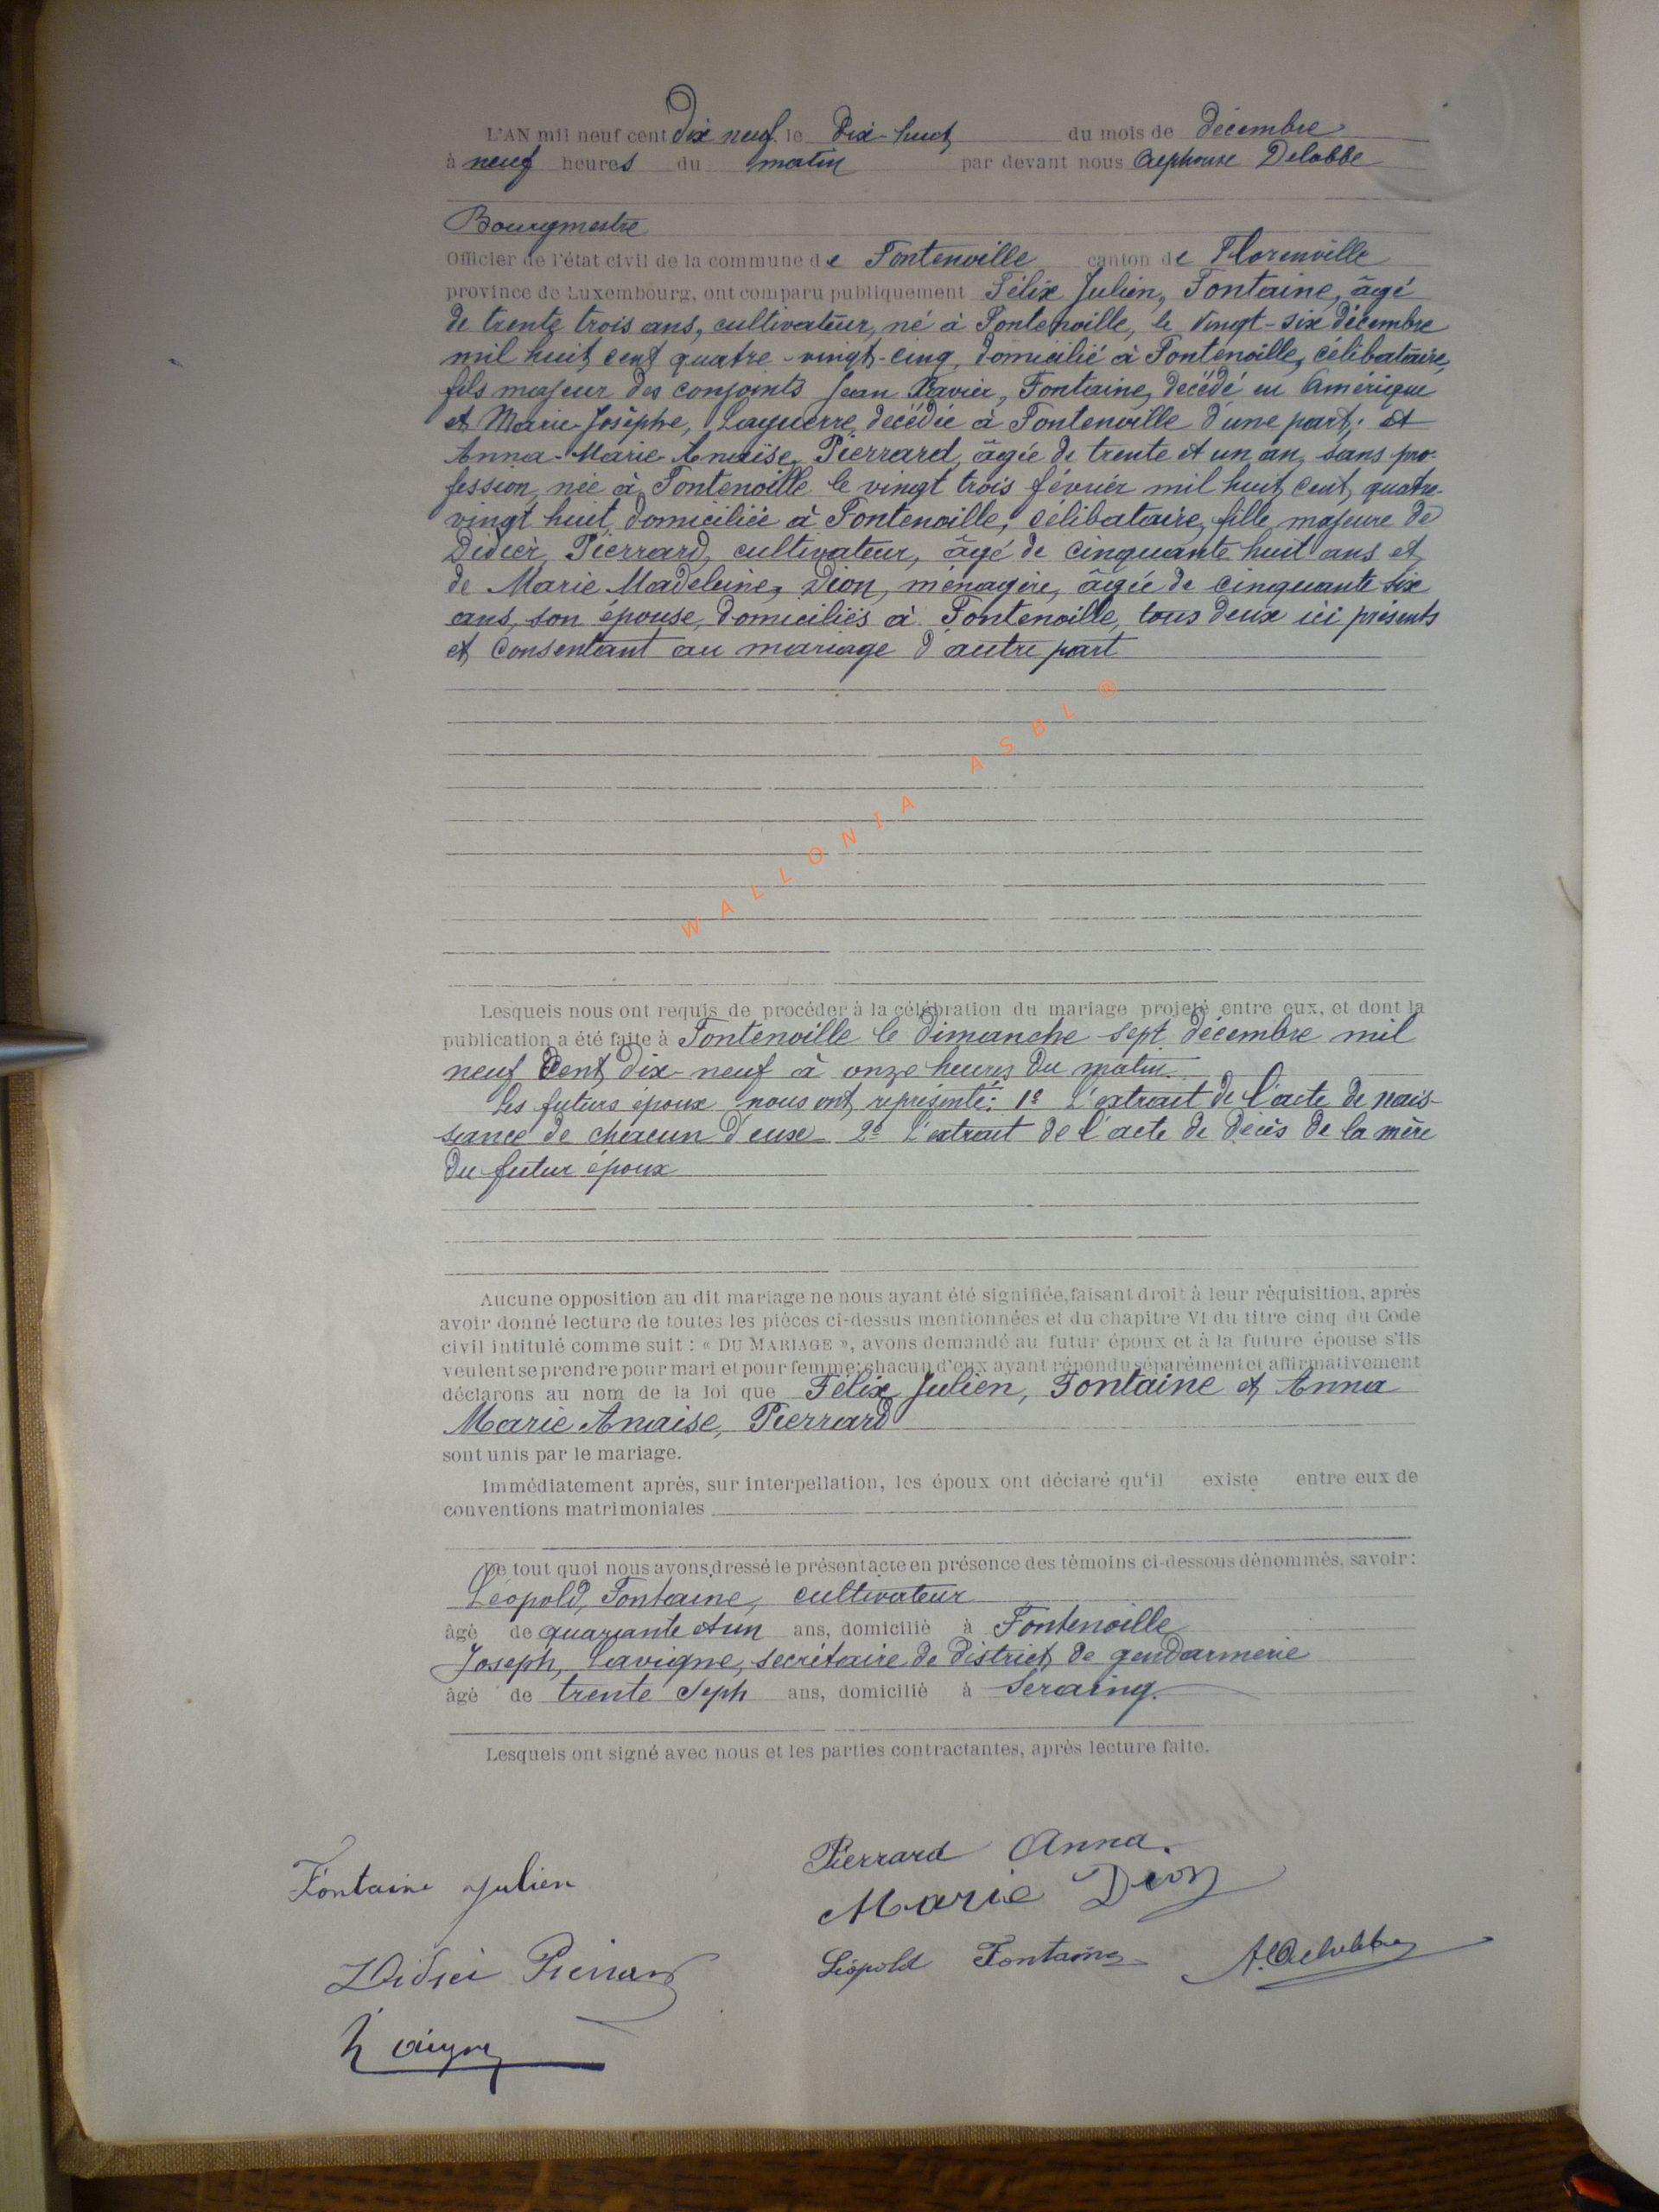 L'AN mil neuf cent dix neuf le Dix-huit du mois de décembre
à neuf heures du matin par devant nous Alphonse Delobbe
Bourgmestre
Officier de l'état civil de la commune de Fontenoille canton de Florenville
province de Luxembourg, ont comparu publiquement Félix Julien, Fontaine, âgé
de trente trois ans, cultivateur, né à Fontenoille, le vingt-six décembre
mil huit cent quatre-vingt-cinq, domicilié à Fontenoille, célibataire,
fils majeur des conjoints Jean Xavier, Fontaine, décédé en Amérique
et Marie-Josèphe, Laguerre, décédée à Fontenoille d'une part; et
Anna-Marie-Anaïse, Pierrard, âgée de trente et un an, sans pro-
fession, née à Fontenoille le vingt trois février mil huit cent quatre-
vingt huit, domiciliée à Fontenoille, célibataire, fille majeure de
Didier, Pierrard, cultivateur, âgé de cinquante huit ans et
de Marie Madeleine, Dion, ménagère, âgée de cinquante six
ans, son épouse, domiciliés à Fontenoille, tous deux ici présents
et consentant au mariage d'autre part
WALLONIA ASBL ®
Lesquels nous ont requis de procéder à la célébration du mariage projeté entre eux, et dont la
publication a été faite à Fontenoille le dimanche sept décembre mil
neuf cent dix-neuf à onze heures du matin.
Les futurs époux nous ont représenté: 1º L'extrait de l'acte de nais-
sance de chacun d'eux 2º L'extrait de l'acte de décès de la mère
du futur époux
Aucune opposition au dit mariage ne nous ayant été signifiée, faisant droit à leur réquisition, après
avoir donné lecture de toutes les pièces ci-dessus mentionnées et du chapitre VI du titre cinq du Code
civil intitulé comme suit : « DU MARIAGE », avons demandé au futur époux et à la future épouse s'ils
veulent se prendre pour mari et pour femme; chacun d'eux ayant répondu séparément et affirmativement
déclarons au nom de la loi que Félix Julien, Fontaine et Anna
Marie Anaise, Pierrard
sont unis par le mariage.
Immédiatement après, sur interpellation, les époux ont déclaré qu'il existe entre eux de
conventions matrimoniales
De tout quoi nous avons dressé le présent acte en présence des témoins ci-dessous dénommés, savoir:
Léopold, Fontaine, cultivateur
âgé de quarante et un ans, domicilié à Fontenoille
Joseph, Lavigne, secrétaire de district de gendarmerie
âgé de trente Seph ans, domicilié à Seraing.
Lesquels ont signé avec nous et les parties contractantes, après lecture faite.
Pierrard Anna.
Fontaine Julien
Marie Dion
Léopold Fontaine A. Delobbe
Didier Pierrard